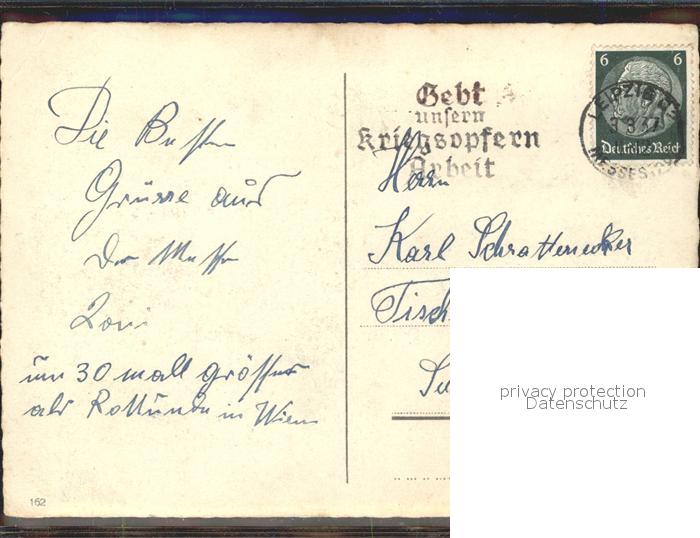 Die Besten
Grüsse aus
Der Messe
Loni
um 30 mall grösser
als Rottunde in Wien
162
Gebt
unsern
Kriegsopfern
Arbeit
6 6
LEIPZIG
9 3 37
MESSES
Deutsches Reich
Herrn
Karl Schrattenecker
Tisch
privacy protection
Datenschutz